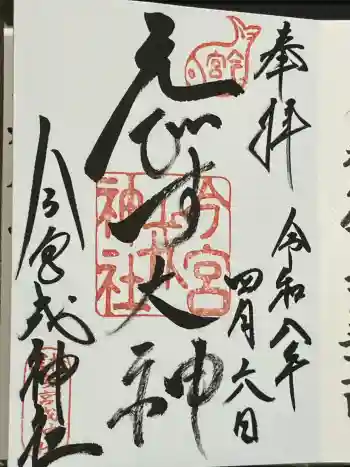 奉拝
令和八年
四月六日
今宮
えびす大神
今宮戎神社
今宮戎神社